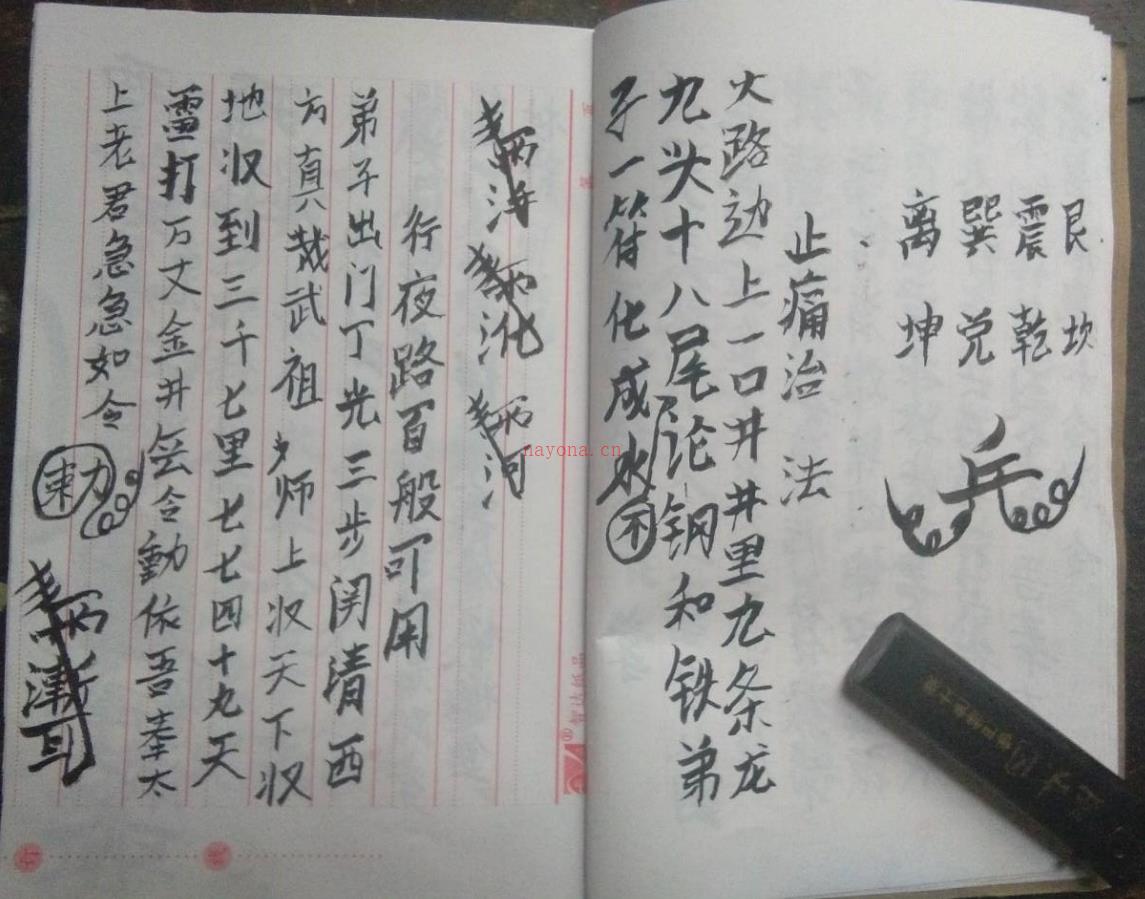 艮坎
震乾
巽兑
离坤
兵
止痛治法
大路边上一口井井里九条龙
九头十八尾论钢和铁弟
子一符化成水
行夜路百般可用
弟子出门丁光三步闵清西
方真八戝武祖师上収天下収
地収到三千七里七七四十九天
雷打万丈金井会令動依吾奉太
上老君急急如令
敕
nayona.cn